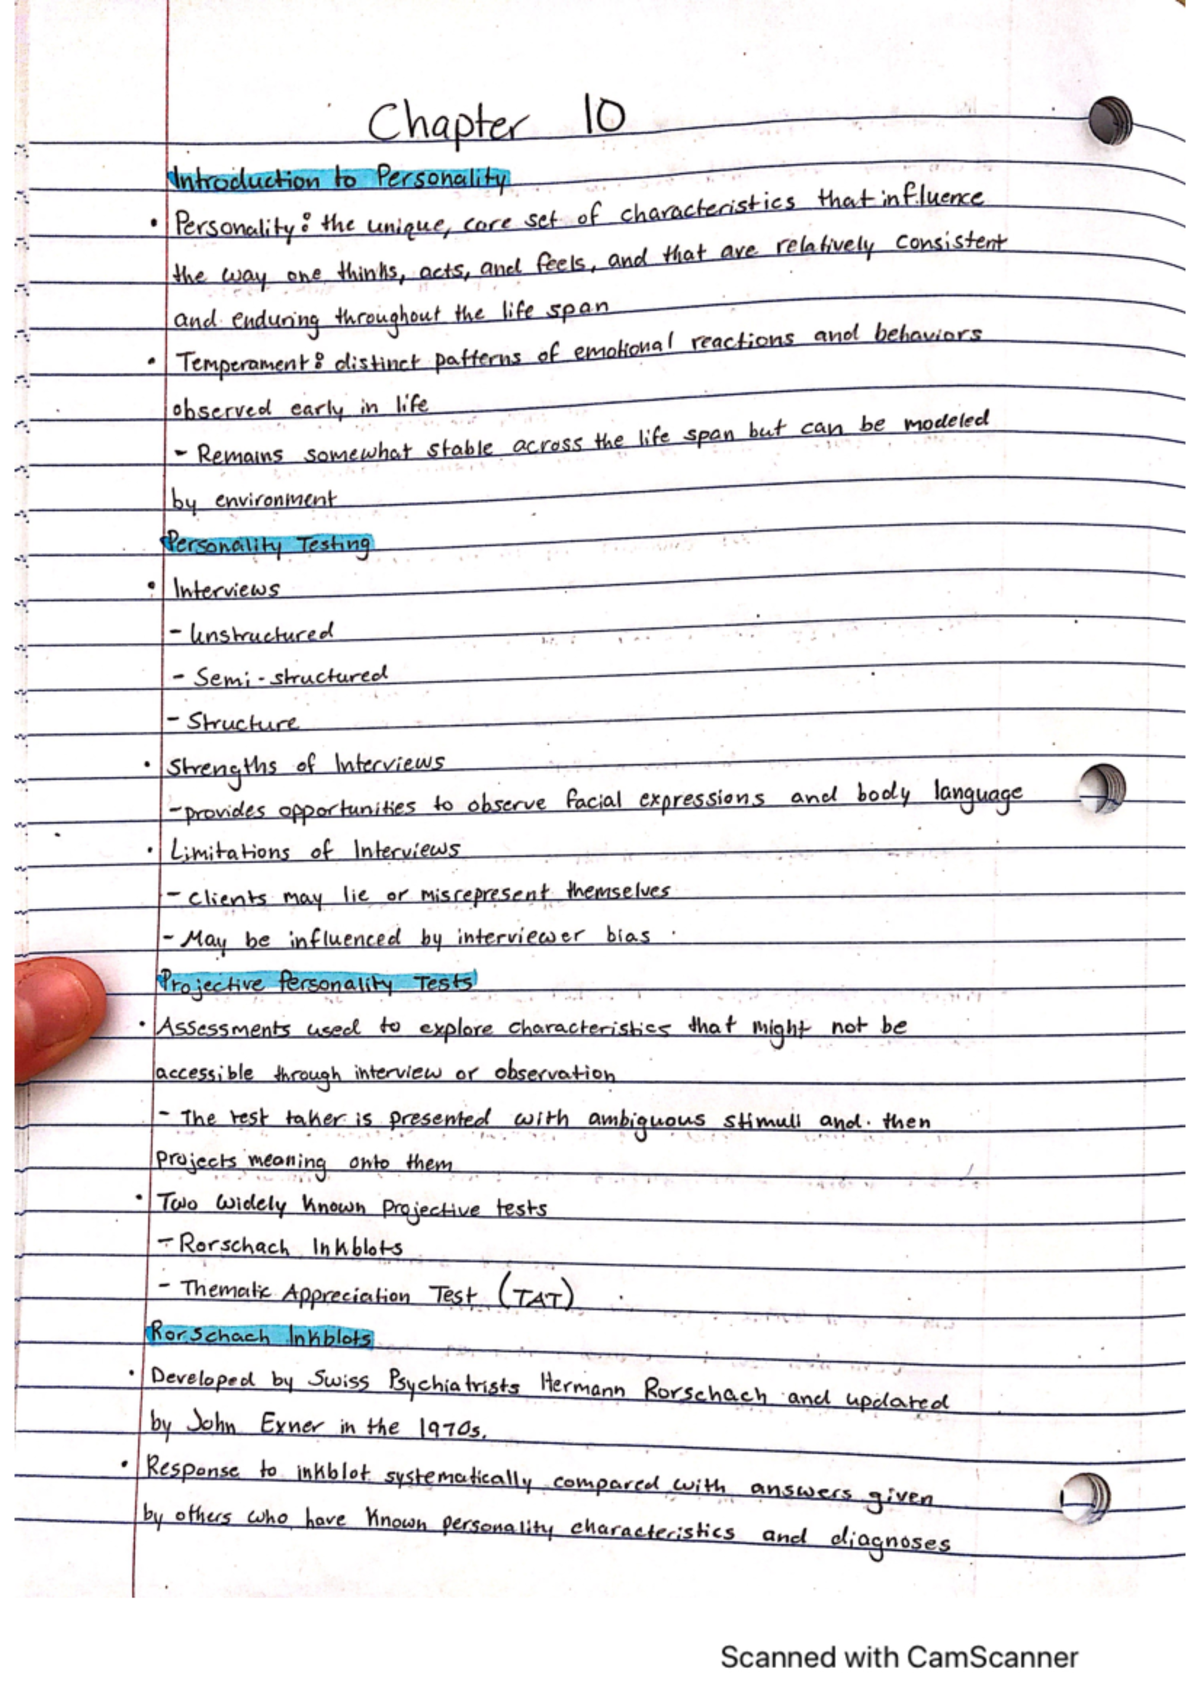 Chapter 10
Introduction to Personality
• Personality: the unique, core set of characteristics that influence
the way one thinks, acts, and feels, and that are relatively consistent
and enduring throughout the life span
• Temperament: distinct patterns of emotional reactions and behaviors
observed early in life
- Remains somewhat stable across the life span but can be modeled
by environment
Personality Testing
• Interviews
- Unstructured
- Semi-structured
- Structure
• Strengths of Interviews
- provides opportunities to observe facial expressions and body language
• Limitations of Interviews
- clients may lie or misrepresent themselves
- May be influenced by interviewer bias
Projective Personality Tests
• Assessments used to explore characteristics that might not be
accessible through interview or observation
- The test taker is presented with ambiguous stimuli and then
projects meaning onto them
• Two widely known projective tests
- Rorschach Inkblots
- Thematic Appreciation Test (TAT)
Rorschach Inkblots
• Developed by Swiss Psychiatrists Hermann Rorschach and updated
by John Exner in the 1970s.
• Response to inkblot systematically compared with answers given
by others who have known personality characteristics and diagnoses
Scanned with CamScanner